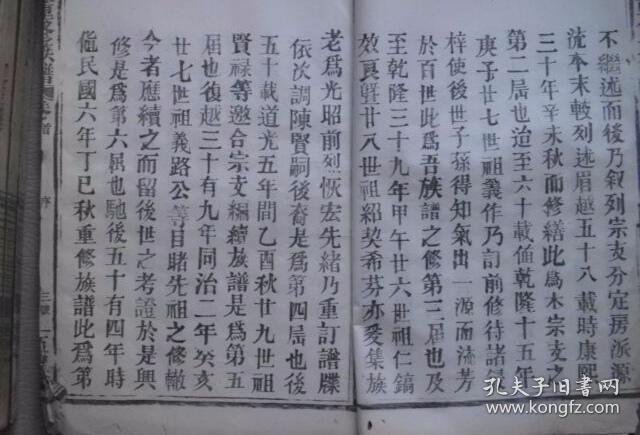 不繼述而後乃叙列宗支分定房派源
流本末較列述眉越五十八載時康熙
三十年辛未秋而修繕此爲本宗支之
第二屆也迨至六十載値乾隆十五年
庚子廿七世祖義作乃訂前修待諸録
梓使後世子孫得知氣出一源而流芳
於百世此爲吾族譜之修第三屆也及
至乾隆三十九年甲午廿六世祖仁鎬
效良暨廿八世祖紹契希芬亦爰集族
老爲光昭前烈恢宏先緒乃重訂譜牒
依次調陳賢嗣後裔是爲第四屆也後
五十載道光五年間乙酉秋廿九世祖
賢禄等邀合宗支編續族譜是爲第五
屆也後越三十有九年同治二年癸亥
廿七世祖義路公等目睹先祖之修轍
今者應續之而留後世之考證於是興
修是爲第六屆也馳後五十有四年時
値民國六年丁巳秋重修族譜此爲第
序
孔夫子旧书网
www.kongfz.com